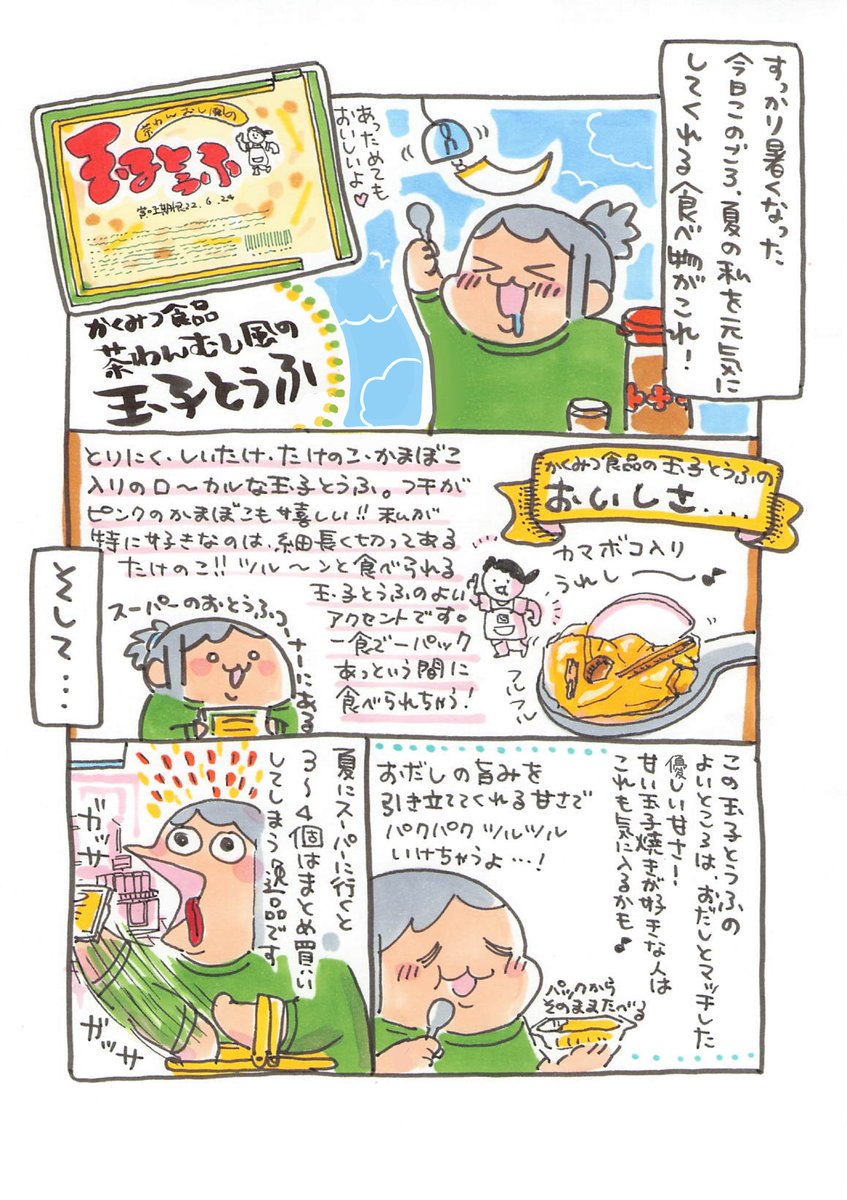 すっかり暑くなった
今日このごろ、夏の私を元気に
してくれる食べ物がこれ!
茶わんむし風の
玉子とうふ
賞味期限22.6.24
あっためても
おいしいよ♡
かくみつ食品
茶わんむし風の
玉子とうふ
かくみつ食品の玉子とうふの
おいしさ....
とりにく・しいたけ・たけのこ・かまぼこ
入りのローカルな玉子とうふ。フチが
ピンクのかまぼこも嬉しい!!私が
特に好きなのは、細長く切ってある
たけのこ!!ツル〜ンと食べられる
玉子とうふのよい
アクセントです。
一食で一パック
あっという間に
食べられちゃう!
カマボコ入り
うれし〜♪
フルフル
スーパーのおとうふコーナーにある
そして...
この玉子とうふの
よいところは、おだしとマッチした
優しい甘さ!
甘い玉子焼きが好きな人は
これも気に入るかも♪
おだしの旨みを
引き立ててくれる甘さで
パクパクツルツル
いけちゃうよ…!
パックから
そのままたべる
夏にスーパーに行くと
3〜4個はまとめ買い
してしまう逸品です
ガッサ
ガッサ